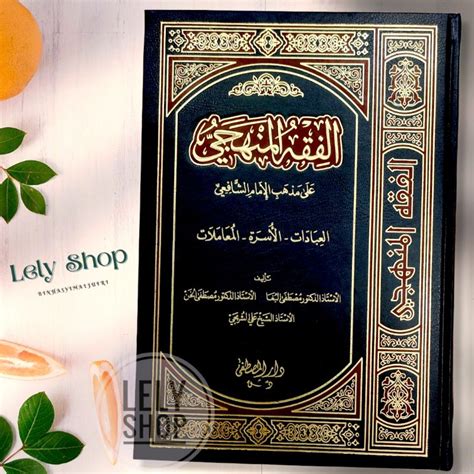 Lely Shop
الفقه المنهجي
على مذهب الإمام الشافعي
العبادات - الأسرة - المعاملات
تأليف
الأستاذ الدكتور مصطفى البغا الأستاذ الدكتور مصطفى الخن
الأستاذ الشيخ علي الشربجي
دار المصطفى
LELY
SHOP
الفقه المنهجي